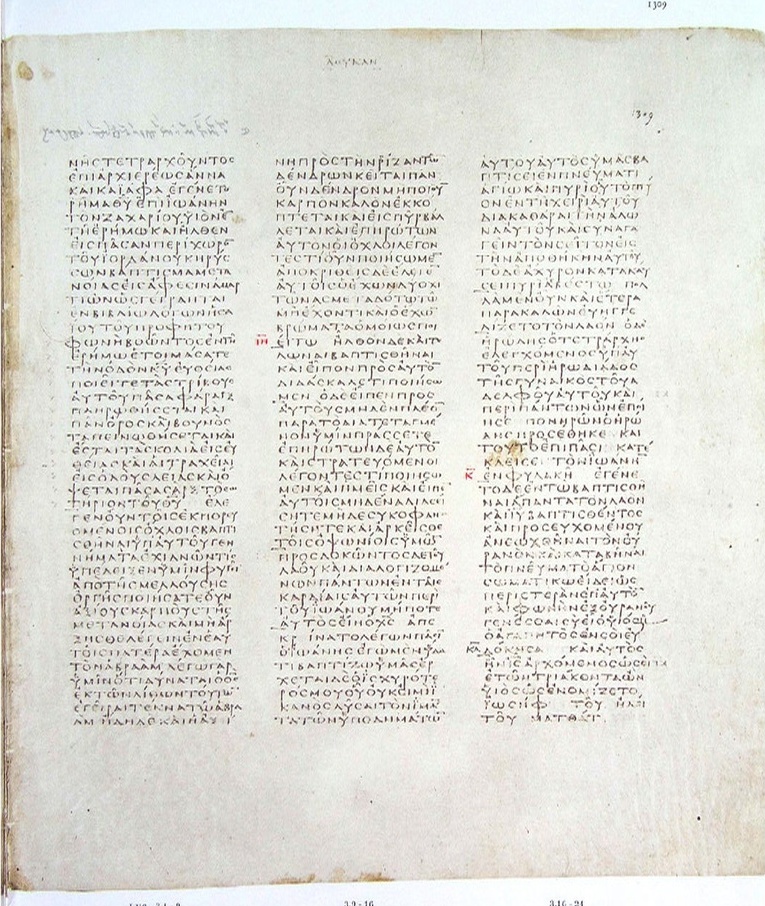 ΛΟΥΚΑΝ
1309
1309
ΝΗϹΤΕΤΡΑΡΧΟΥΝΤΟϹ
ΕΠΙΑΡΧΙΕΡΕΩϹΑΝΝΑ
ΚΑΙΚΑΙΑΦΑΕΓΕΝΕΤΟ
ΡΗΜΑΘΥΕΠΙΙΩΑΝΗΝ
ΤΟΝΖΑΧΑΡΙΟΥΥΙΟΝΕ
ΤΗΕΡΗΜΩΚΑΙΗΛΘΕΝ
ΕΙϹΠΑϹΑΝΠΕΡΙΧΩΡΟ
ΤΟΥΙΟΡΔΑΝΟΥΚΗΡΥϹ
ϹΩΝΒΑΠΤΙϹΜΑΜΕΤΑ
ΝΟΙΑϹΕΙϹΑΦΕϹΙΝΑΜΑΡ
ΤΙΩΝΩϹΓΕΓΡΑΠΤΑΙ
ΕΝΒΙΒΛΩΛΟΓΩΝΗϹΑ
ΙΟΥΤΟΥΠΡΟΦΗΤΟΥ
ΦΩΝΗΒΟΩΝΤΟϹΕΝΤΗ
ΕΡΗΜΩΕΤΟΙΜΑϹΑΤΕ
ΤΗΝΟΔΟΝΚΥΕΥΘΕΙΑϹ
ΠΟΙΕΙΤΕΤΑϹΤΡΙΒΟΥϹ
ΑΥΤΟΥΠΑϹΑΦΑΡΑΓΞ
ΠΛΗΡΩΘΗϹΕΤΑΙΚΑΙ
ΠΑΝΟΡΟϹΚΑΙΒΟΥΝΟϹ
ΤΑΠΕΙΝΩΘΗϹΕΤΑΙΚΑΙ
ΕϹΤΑΙΤΑϹΚΟΛΙΑΕΙϹΕΥ
ΘΕΙΑϹΚΑΙΑΙΤΡΑΧΕΙΑΙ
ΕΙϹΟΔΟΥϹΛΕΙΑϹΚΑΙΟ
ΨΕΤΑΙΠΑϹΑϹΑΡΞΤΟϹΩ
ΤΗΡΙΟΝΤΟΥΘΥ ΕΛΕ
ΓΕΝΟΥΝΤΟΙϹΕΚΠΟΡΕΥ
ΟΜΕΝΟΙϹΟΧΛΟΙϹΒΑΠΤΙ
ϹΘΗΝΑΙΥΠΑΥΤΟΥΓΕΝ
ΝΗΜΑΤΑΕΧΙΔΝΩΝΤΙϹ
ΥΠΕΔΕΙΞΕΝΥΜΙΝΦΥΓΕΙ
ΑΠΟΤΗϹΜΕΛΛΟΥϹΗϹ
ΟΡΓΗϹΠΟΙΗϹΑΤΕΟΥΝ
ΑΞΙΟΥϹΚΑΡΠΟΥϹΤΗϹ
ΜΕΤΑΝΟΙΑϹΚΑΙΜΗΑΡ
ΞΗϹΘΕΛΕΓΕΙΝΕΝΕΑΥ
ΤΟΙϹΠΑΤΕΡΑΕΧΟΜΕΝ
ΤΟΝΑΒΡΑΑΜΛΕΓΩΓΑΡ
ΥΜΙΝΟΤΙΔΥΝΑΤΑΙΟΘϹ
ΕΚΤΩΝΛΙΘΩΝΤΟΥΤΩ
ΕΓΕΙΡΑΙΤΕΚΝΑΤΩΑΒΡΑ
ΑΜΗΔΗΔΕΚΑΙΗΑΞΙ
ΝΗΠΡΟϹΤΗΝΡΙΖΑΝΤΩ
ΔΕΝΔΡΩΝΚΕΙΤΑΙΠΑΝ
ΟΥΝΔΕΝΔΡΟΝΜΗΠΟΙΟΥ
ΚΑΡΠΟΝΚΑΛΟΝΕΚΚΟ
ΠΤΕΤΑΙΚΑΙΕΙϹΠΥΡΒΑΛ
ΛΕΤΑΙΚΑΙΕΠΗΡΩΤΩΝ
ΑΥΤΟΝΟΙΟΧΛΟΙΛΕΓΟΝ
ΤΕϹΤΙΟΥΝΠΟΙΗϹΩΜΕ
ΑΠΟΚΡΙΘΕΙϹΔΕΕΛΕΓΕ
ΑΥΤΟΙϹΟΕΧΩΝΔΥΟΧΙ
ΤΩΝΑϹΜΕΤΑΔΟΤΩΤΩ
ΜΗΕΧΟΝΤΙΚΑΙΟΕΧΩ
ΒΡΩΜΑΤΑΟΜΟΙΩϹΠΟΙ
ΙΗ
ΕΙΤΩ ΗΛΘΟΝΔΕΚΑΙΤΕ
ΛΩΝΑΙΒΑΠΤΙϹΘΗΝΑΙ
ΚΑΙΕΙΠΟΝΠΡΟϹΑΥΤΟ
ΔΙΔΑϹΚΑΛΕΤΙΠΟΙΗϹΩ
ΜΕΝ ΟΔΕΕΙΠΕΝΠΡΟϹ
ΑΥΤΟΥϹΜΗΔΕΝΠΛΕΟ
ΠΑΡΑΤΟΔΙΑΤΕΤΑΓΜΕ
ΝΟΝΥΜΙΝΠΡΑϹϹΕΤΕ
ΕΠΗΡΩΤΩΝΔΕΑΥΤΟ
ΚΑΙϹΤΡΑΤΕΥΟΜΕΝΟΙ
ΛΕΓΟΝΤΕϹΤΙΠΟΙΗϹΩ
ΜΕΝΚΑΙΗΜΕΙϹΚΑΙΕΙΠΕ
ΑΥΤΟΙϹΜΗΔΕΝΑΔΙΑϹΕΙ
ϹΗΤΕΜΗΔΕϹΥΚΟΦΑΝ
ΤΗϹΗΤΕΚΑΙΑΡΚΕΙϹΘΕ
ΤΟΙϹΟΨΩΝΙΟΙϹΥΜΩ
ΠΡΟϹΔΟΚΩΝΤΟϹΔΕΤΟΥ
ΛΑΟΥΚΑΙΔΙΑΛΟΓΙΖΟΜΕ
ΝΩΝΠΑΝΤΩΝΕΝΤΑΙϹ
ΚΑΡΔΙΑΙϹΑΥΤΩΝΠΕΡΙ
ΤΟΥΙΩΑΝΟΥΜΗΠΟΤΕ
ΑΥΤΟϹΕΙΗΟΧϹ ΑΠΕ
ΚΡΙΝΑΤΟΛΕΓΩΝΠΑϹΙ
ΟΙΩΑΝΗϹΕΓΩΜΕΝΥΔΑ
ΤΙΒΑΠΤΙΖΩΥΜΑϹΕΡ
ΧΕΤΑΙΔΕΟΙϹΧΥΡΟΤΕ
ΡΟϹΜΟΥΟΥΟΥΚΕΙΜΙΙ
ΚΑΝΟϹΛΥϹΑΙΤΟΝΙΜΑ
ΤΑΤΩΝΥΠΟΔΗΜΑΤΩ
ΑΥΤΟΥΑΥΤΟϹΥΜΑϹΒΑ
ΠΤΙϹΕΙΕΝΠΝΕΥΜΑΤΙ
ΑΓΙΩΚΑΙΠΥΡΙΟΥΤΟΠΤΥ
ΟΝΕΝΤΗΧΕΙΡΙΑΥΤΟΥ
ΔΙΑΚΑΘΑΡΑΙΤΗΝΑΛΩ
ΝΑΑΥΤΟΥΚΑΙϹΥΝΑΓΑ
ΓΕΙΝΤΟΝϹΕΙΤΟΝΕΙϹ
ΤΗΝΑΠΟΘΗΚΗΝΑΥΤΟΥ
ΤΟΔΕΑΧΥΡΟΝΚΑΤΑΚΑΥ
ϹΕΙΠΥΡΙΑϹΒΕϹΤΩ ΠΟΛ
ΛΑΜΕΝΟΥΝΚΑΙΕΤΕΡΑ
ΠΑΡΑΚΑΛΩΝΕΥΗΓΓΕ
ΛΙΖΕΤΟΤΟΝΛΑΟΝ ΟΔΕ
ΗΡΩΔΗϹΟΤΕΤΡΑΡΧΗϹ
ΕΛΕΓΧΟΜΕΝΟϹΥΠΑΥ
ΤΟΥΠΕΡΙΗΡΩΔΙΑΔΟϹ
ΤΗϹΓΥΝΑΙΚΟϹΤΟΥΑ
ΔΕΛΦΟΥΑΥΤΟΥΚΑΙ
ΠΕΡΙΠΑΝΤΩΝΩΝΕΠΟΙ
ΗϹΕ ΠΟΝΗΡΩΝΟΗΡΩ
ΔΗϹΠΡΟϹΕΘΗΚΕ ΚΑΙ
ΤΟΥΤΟΕΠΙΠΑϹΙ ΚΑΤΕ
ΚΛΕΙϹΕ ΤΟΝΙΩΑΝΗ
ΕΝΦΥΛΑΚΗ ΕΓΕΝΕ
ΤΟΔΕΕΝΤΩΒΑΠΤΙϹΘΗ
ΝΑΙΑΠΑΝΤΑΤΟΝΛΑΟΝ
ΚΑΙΙΥΒΑΠΤΙϹΘΕΝΤΟϹ
ΚΑΙΠΡΟϹΕΥΧΟΜΕΝΟΥ
ΑΝΕΩΧΘΗΝΑΙΤΟΝΟΥ
ΡΑΝΟΝΚΑΙΚΑΤΑΒΗΝΑΙ
ΤΟΠΝΕΥΜΑΤΟΑΓΙΟΝ
ϹΩΜΑΤΙΚΩΕΙΔΕΙΩϹ
ΠΕΡΙϹΤΕΡΑΝΕΠΑΥΤΟ
ΚΑΙΦΩΝΗΝΕΞΟΥΡΑΝΟΥ
ΓΕΝΕϹΘΑΙϹΥΕΙΟΥΙΟϹΜΟΥ
ΟΑΓΑΠΗΤΟϹΕΝϹΟΙΕΥ
ΚΑ
ΔΟΚΗϹΑ ΚΑΙΑΥΤΟϹ
ΗΝΙϹΑΡΧΟΜΕΝΟϹΩϹΕΙ
ΕΤΩΝΤΡΙΑΚΟΝΤΑΩΝ
ΥΙΟϹΩϹΕΝΟΜΙΖΕΤΟ
ΙΩϹΗΦ ΤΟΥ ΗΛΕΙ
ΤΟΥ ΜΑΤΘΑΤ
3.9-16
3.16-24